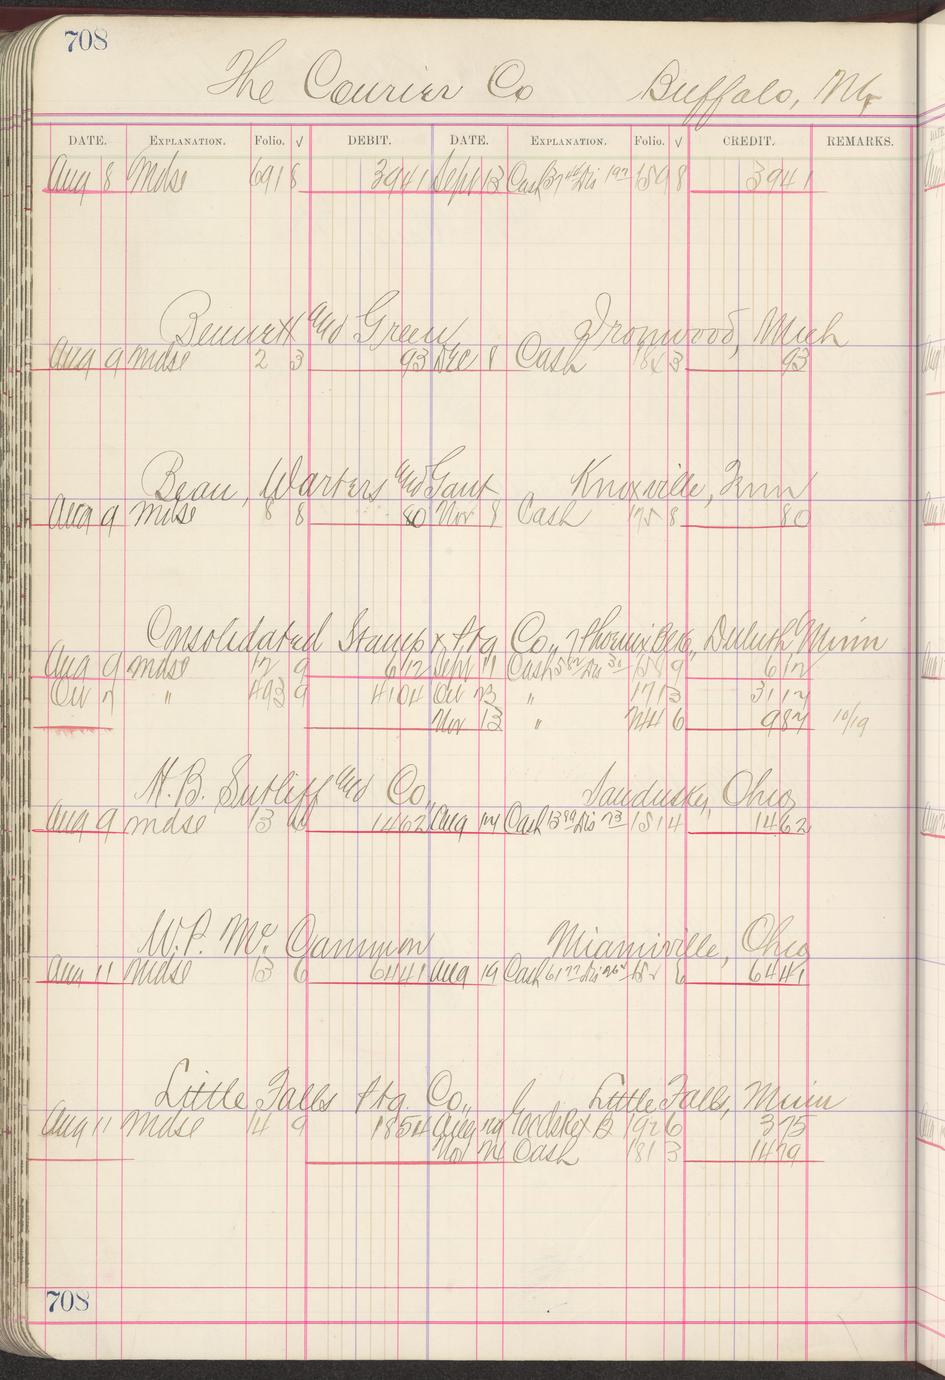 708
The Courier Co Buffalo, NY
DATE. EXPLANATION. Folio. √ DEBIT. DATE. EXPLANATION. Folio. √ CREDIT. REMARKS.
Aug 8 Mdse 691 8 3941 Sept 13 Cash 37 44 Dis 1 97 159 8 3941
Bennett and Green Ironwood, Mich
Aug 9 Mdse 2 3 93 Dec 8 Cash 184 3 93
Bean, Warters and Gaut Knoxville, Tenn
Aug 9 Mdse 8 8 80 Nov 9 Cash 175 8 80
Consolidated Stamp & Ptg Co., Phoenix Blk, Duluth, Minn
Aug 9 Mdse 12 9 612 Sept 11 Cash 5 82 Dis 31 158 9 612
Oct 7 " 493 9 4104 Oct 23 " 171 3 3117
Nov 13 " 244 6 987 10/19
H. B. Sutliff and Co., Sandusky, Ohio
Aug 9 Mdse 13 1462 Aug 14 Cash 13 89 Dis 73 151 4 1462
W. P. Mc. Cammon Miamiville, Ohio
Aug 11 Mdse 13 6 6441 Aug 19 Cash 61 Dis 152 6 6441
Little Falls Ptg. Co., Little Falls, Minn
Aug 11 Mdse 14 9 1854 Aug 29 B 192 6 375
Nov 24 Cash 181 3 1479
708